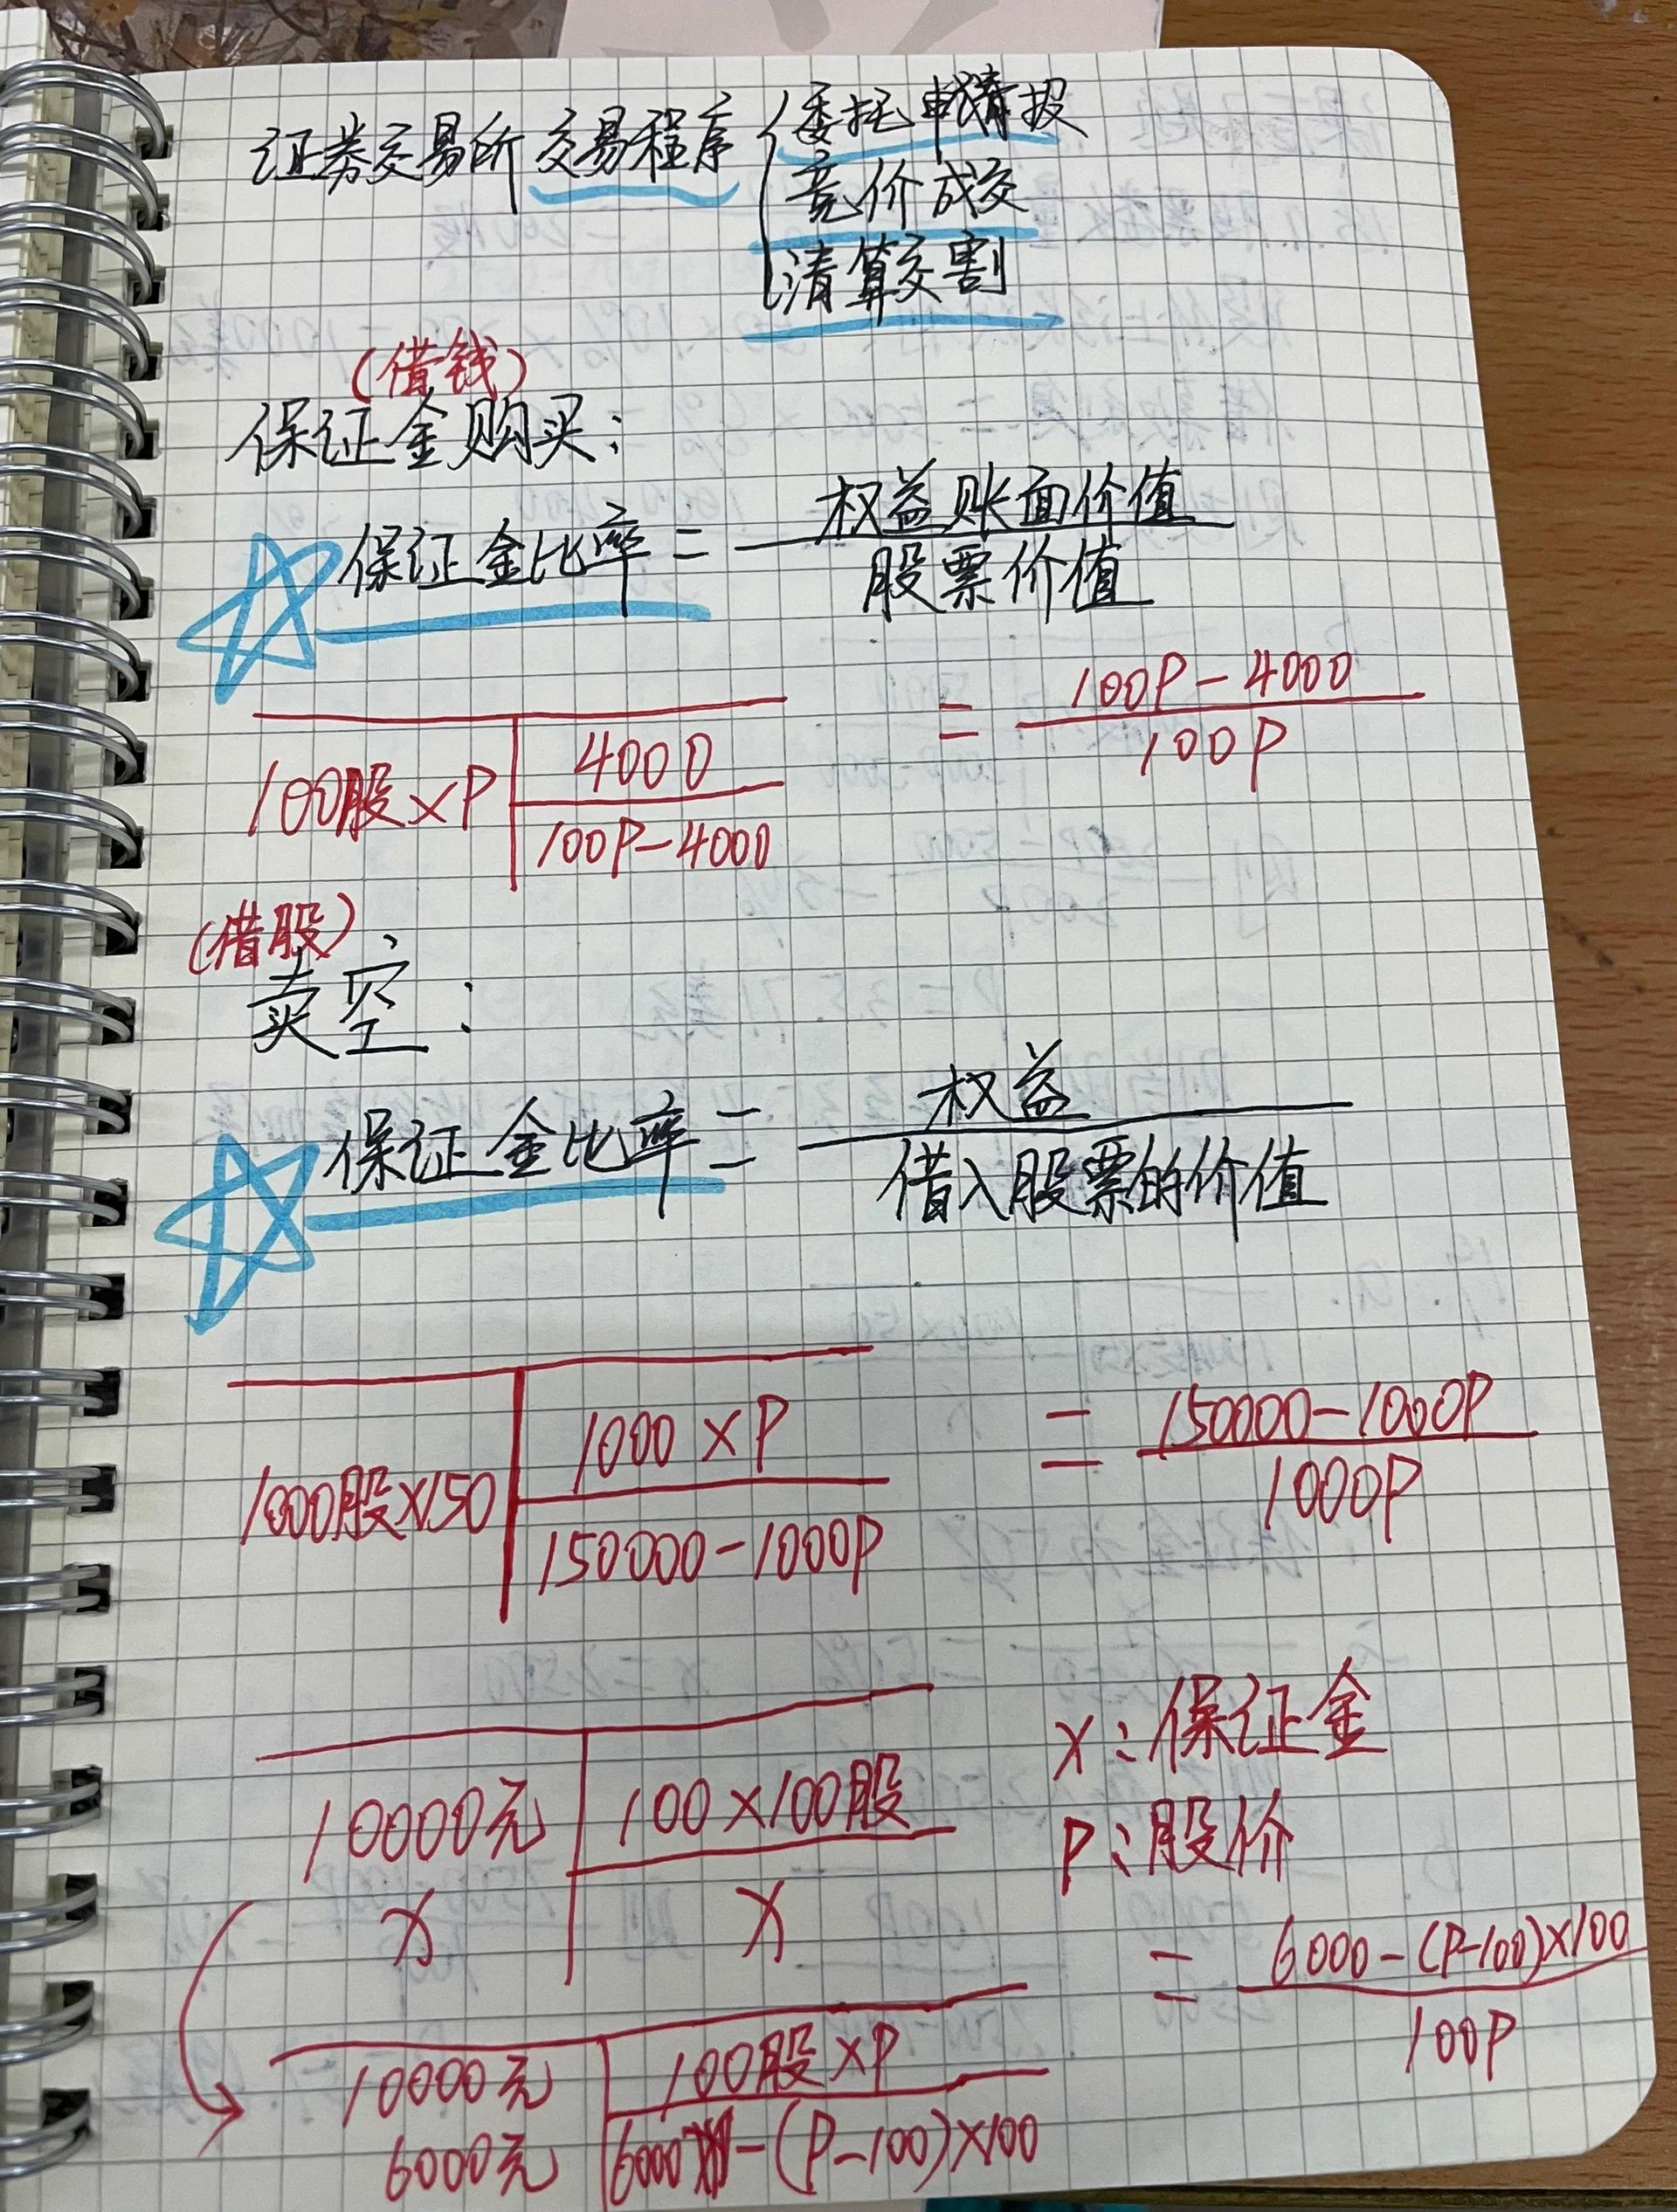 证券交易所交易程序 { 委托申报
竞价成交
清算交割
(借钱)
保证金购买:
保证金比率 = 权益账面价值 / 股票价值
= 100P-4000 / 100P
100股×P | 4000
100P-4000
(借股)
卖空:
保证金比率 = 权益 / 借入股票的价值
1000股×150 | 1000×P
150000-1000P
= 150000-1000P / 1000P
x:保证金
10000元 | 100×100股
P:股价
x | x
= 6000-(P-100)×100 / 100P
10000元 | 100股×P
6000元 | 6000-(P-100)×100